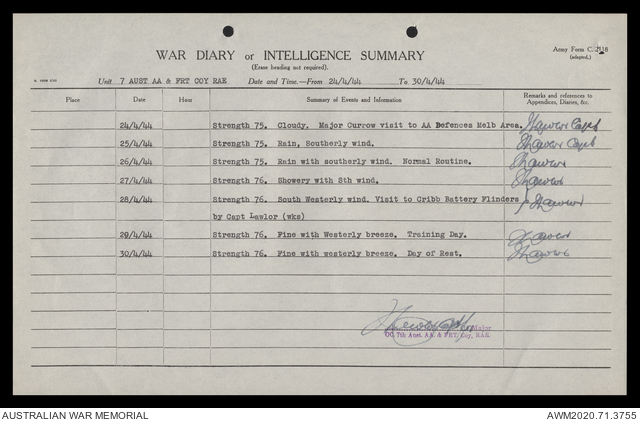 WAR DIARY or INTELLIGENCE SUMMARY
(Erase heading not required).
Army Form C. 2118
(adapted.)
Unit 7 AUST AA & FRT COY RAE Date and Time.—From 24/4/44 To 30/4/44
Place Date Hour Summary of Events and Information Remarks and references to
Appendices, Diaries, &c.
24/4/44 Strength 75. Cloudy. Major Currow visit to AA Defences Melb Area. Capt
25/4/44 Strength 75. Rain, Southerly wind. Capt
26/4/44 Strength 76. Rain with southerly wind. Normal Routine.
27/4/44 Strength 76. Showery with Sth wind.
28/4/44 Strength 76. South Westerly wind. Visit to Cribb Battery Flinders
by Capt Lawlor (wks)
29/4/44 Strength 76. Fine with Westerly breeze. Training Day.
30/4/44 Strength 76. Fine with westerly breeze. Day of Rest.
Major
OC 7th Aust. AA. & FRT. Coy, RAE.
AUSTRALIAN WAR MEMORIAL AWM2020.71.3755